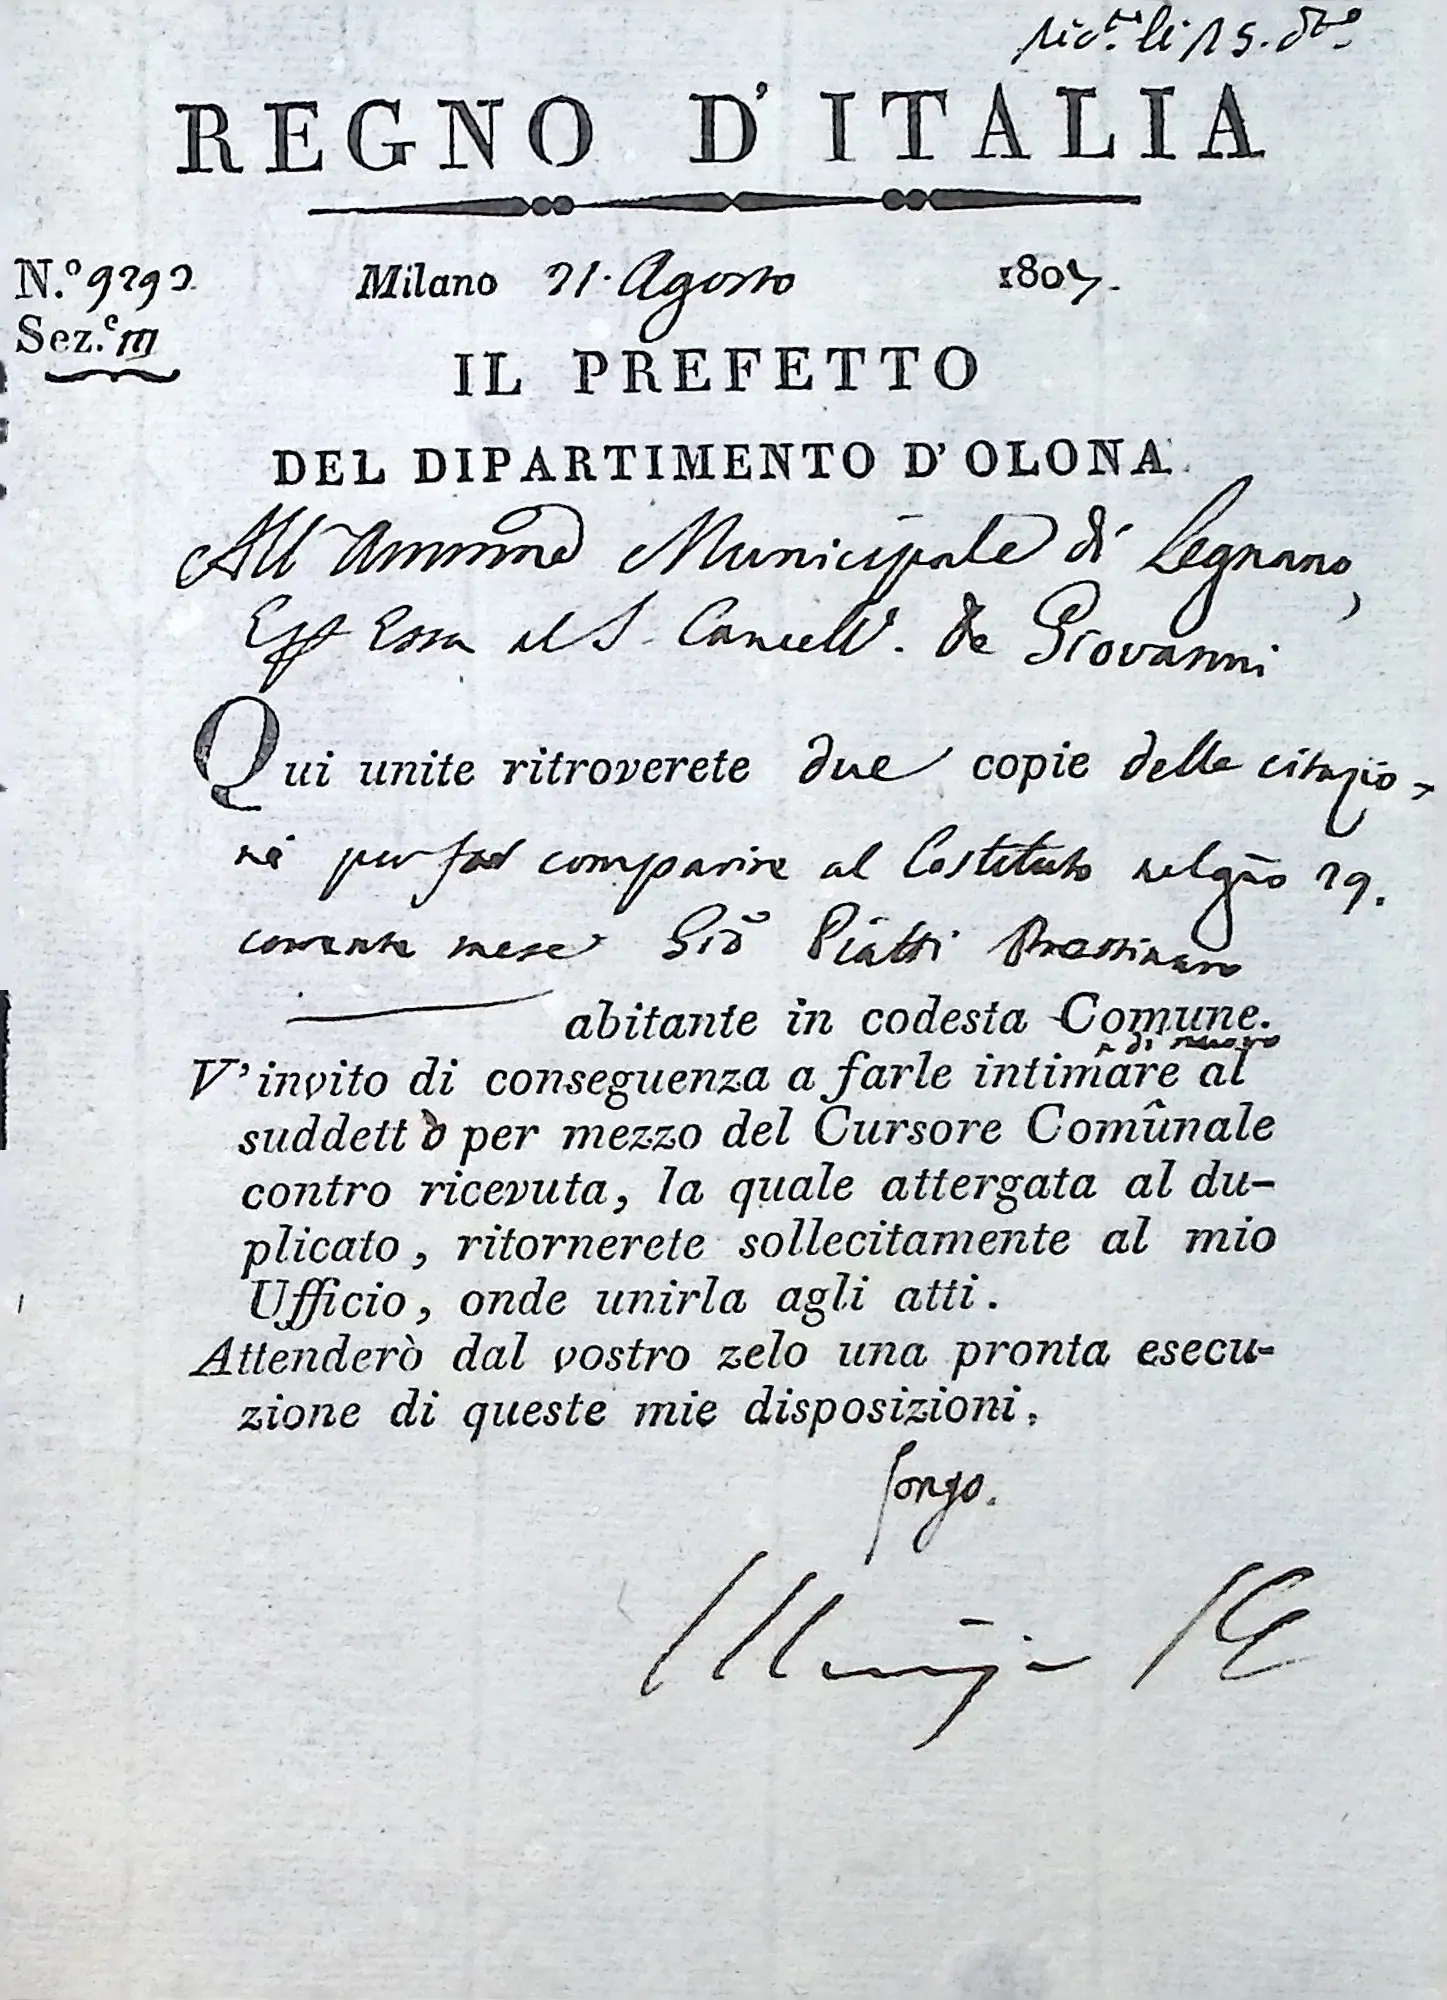 li 25. dto
REGNO D'ITALIA
N.o 9292.
Milano 21. Agosto 1807.
Sez.e III
IL PREFETTO
DEL DIPARTIMENTO D'OLONA.
All'Ammne Municipale di Legnano,
Essa al S. Cancell. De Giovanni
Qui unite ritroverete due copie della citazio-
ne per far comparire al Costituto nel gno 29.
corrente mese Gio Piatti Prestinaro
abitante in codesta Comune.
di nuovo
V'invito di conseguenza a farle intimare al
suddetto per mezzo del Cursore Comûnale
contro ricevuta, la quale attergata al du-
plicato, ritornerete sollecitamente al mio
Ufficio, onde unirla agli atti.
Attenderò dal vostro zelo una pronta esecu-
zione di queste mie disposizioni.